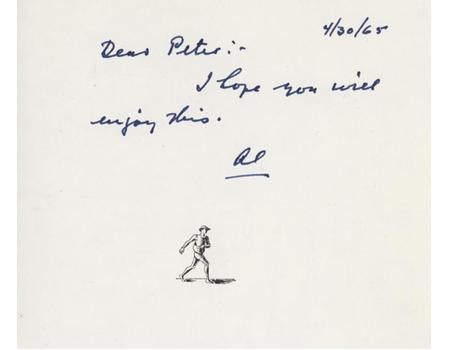 4/30/65
Dear Peter:-
I hope you will
enjoy this.
Al